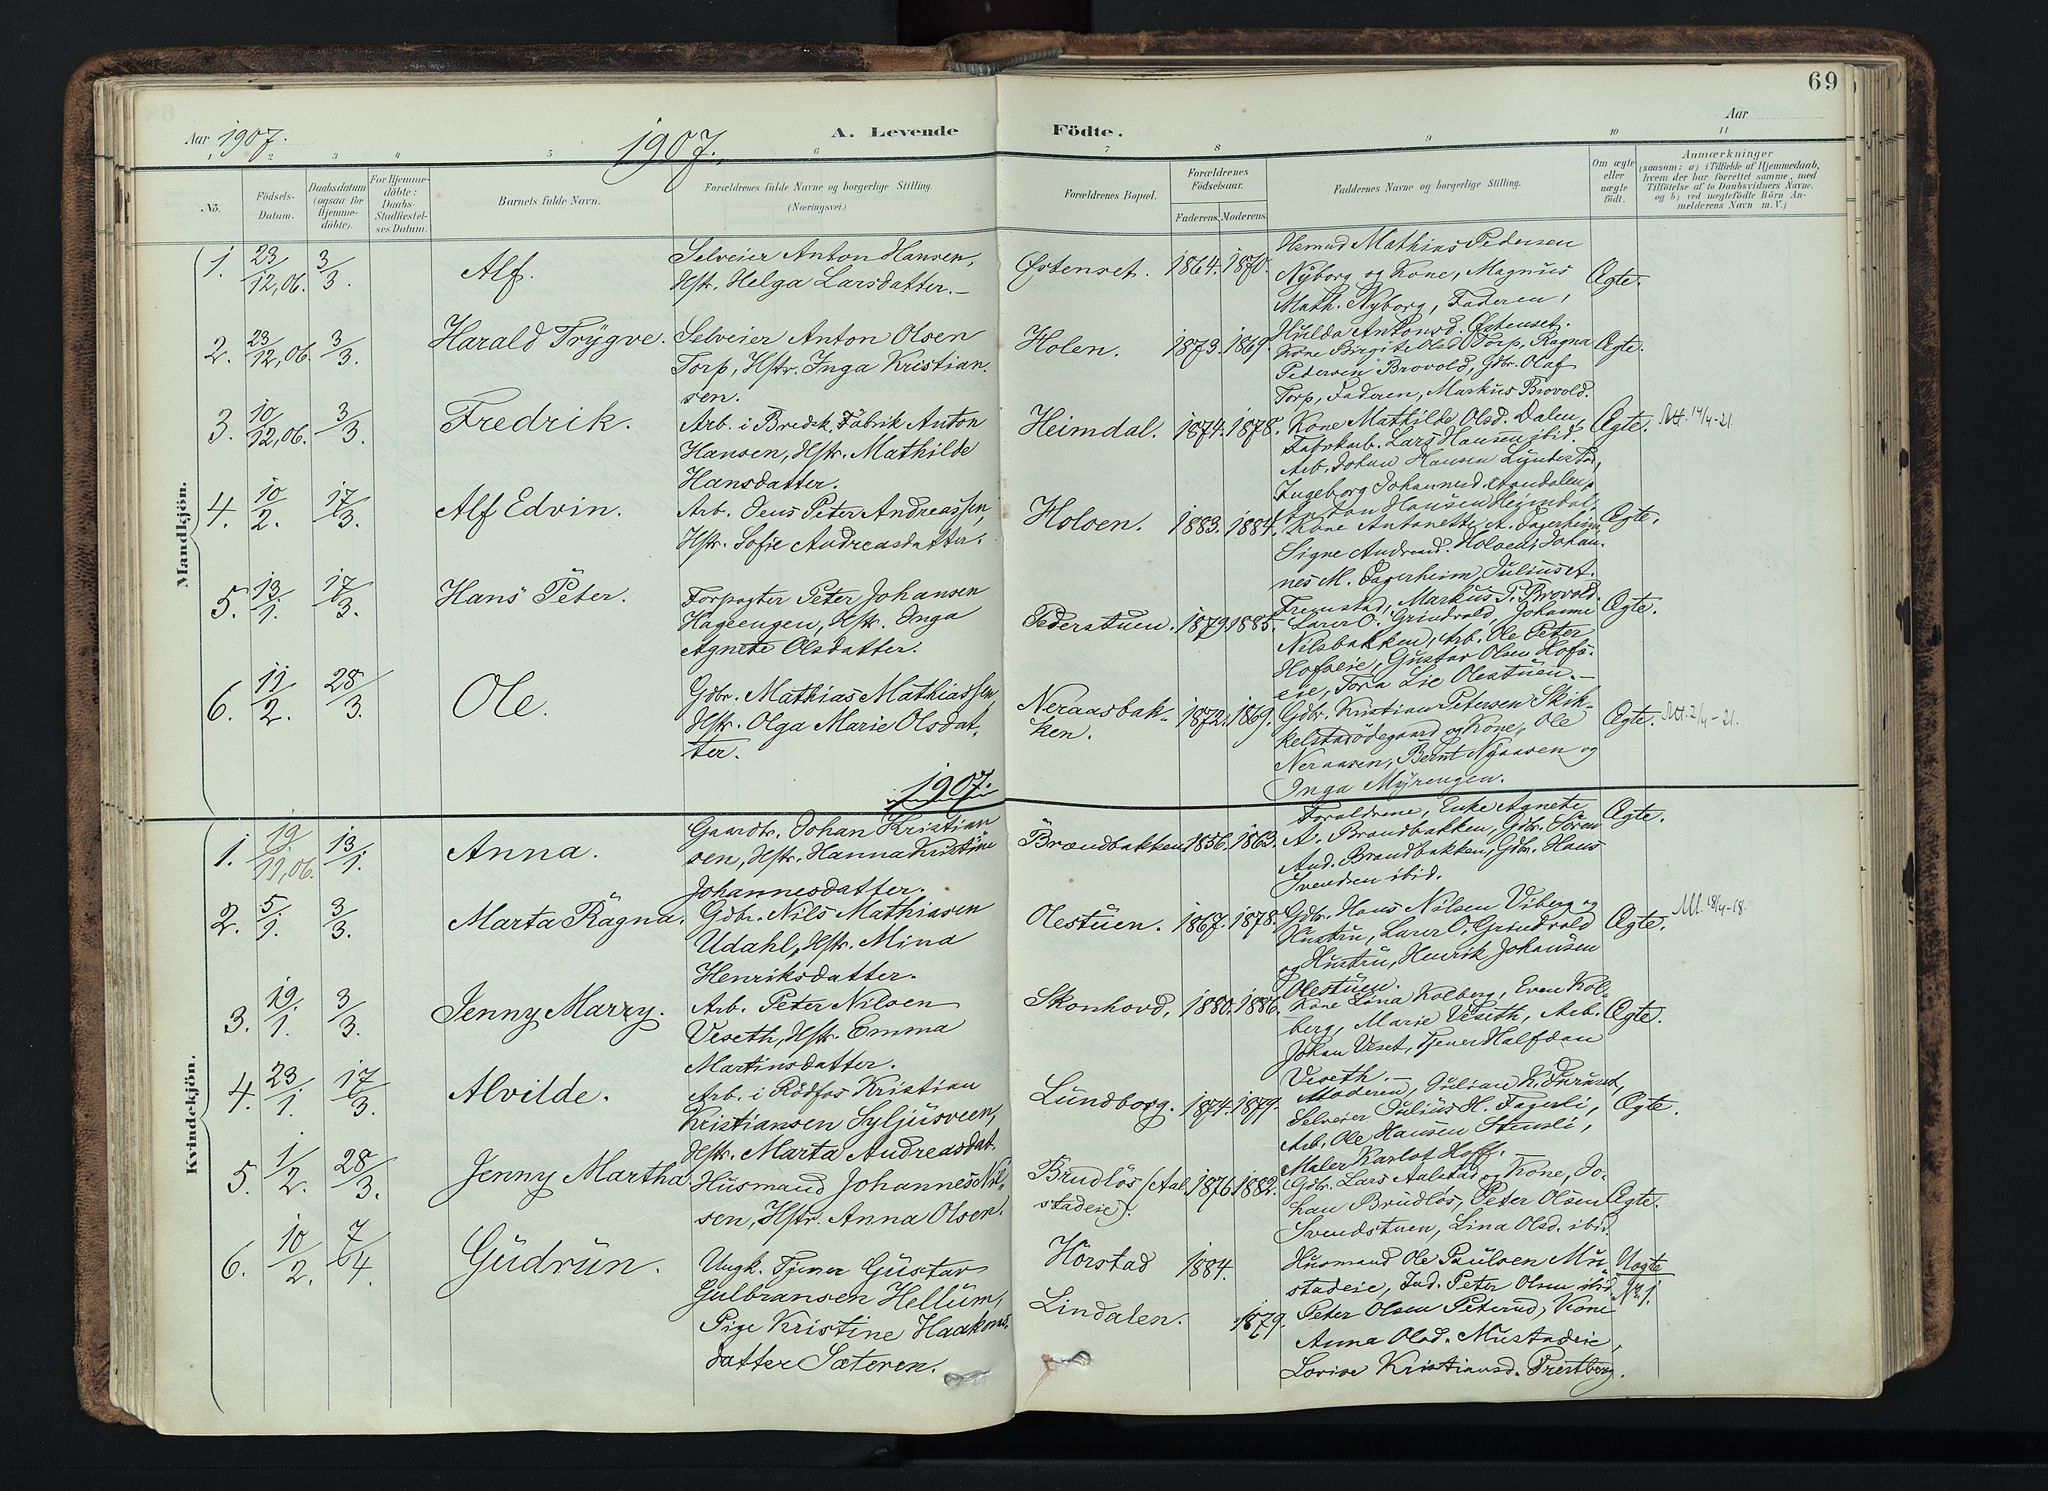 69
Aar 1907.
1907.
A. Levende Födte.
Aar
1 2 3 4 5 6 7 8 9 10 11
No.
Födsels-Datum.
Daabsdatum (ogsaa for Hjemmedöbte).
For Hjemmedöbte: Daabs-Stadfæstelses Datum.
Barnets fulde Navn.
Forældrenes fulde Navne og borgerlige Stilling.
(Næringsvei.)
Forældrenes Bopæl.
Forældrenes Födselsaar.
Faderens. Moderens.
Faddernes Navne og borgerlige Stilling.
Om ægte eller uægte födt.
Anmærkninger
(saasom: a) i Tilfælde af Hjemmedaab, hvem der har forrettet samme, med Tilföielse af to Daabsvidners Navne, og b) ved uægtefödte Börn Anmelderens Navn m. V.)
Mandkjön.
1. 23/12,06. 3/3 Alf. Selveier Anton Hansen, Hstr. Helga Larsdatter.— Østenset. 1864. 1870. Mathias Pedersen Nyborg og Kone, Magnus Math. Nyborg, Faderen, Hilda Antonsd. Østenset. Ægte.
2. 23/12,06. 3/3. Harald Trygve. Selveier Anton Olsen Torp, Hstr. Inga Kristiansen. Holen. 1873. 1869. Kone Birgite Olsd. Torp, Ragna Pedersen Brovold, Gdbr. Olaf Torp, Faderen, Markus Brovold. Ægte.
3. 10/12,06. 3/3. Fredrik. Arb. i Bredsk. Fabrik Anton Hansen, Hstr. Mathilde Hansdatter. Heimdal. 1874. 1878. Kone Mathilde Olsd. Dalen, Fabrikarb. Lars Hansen ibid. Arb. Johan Hansen Ingeborg Johannesd. Anton Hansen Heimdal. Ægte. Att. 14/4-21.
4. 10/2. 17/3. Alf Edvin. Arb. Jens Peter Andreassen, Hstr. Sofie Andreasdatter. Holoen. 1883. 1884. Kone Antonette A. Fagerheim, Signe Andreasd. Holoen, Johannes M. Fagerheim, Juliuset. Ægte.
5. 13/1. 17/3. Hans Peter. Forpagter Peter Johansen Hageengen, Hstr. Inga Agnete Olsdatter. Pederstuen. 1879. 1885. Fremstad, Markus P. Brovold. Lærer O. Grindvold, Johanne Nilsbakken, Arb. Ole Peter Hofseie, Gustav Olsen Hofseie, Tora Lie Olestuen.— Ægte.
6. 11/2. 28/3. Ole. Gdbr. Mathias Mathiassen, Hstr. Olga Marie Olsdatter. Neraasbakken. 1872. 1869. Gdbr. Kristian Petersen Skikkelstadødegaard og Kone, Ole Neraasen, Bernt Nyaasen og Inga Myrengen. Ægte. Att. 2/4-21.
1907.
Kvindekjön.
1. 19/11,06. 13/1. Anna. Gaardbr. Johan Kristiansen, Hstr. Hanna Kristine Johannesdatter. Brændbakken. 1856. 1863. Forældrene, Enke Agnete A. Brandbakken, Gdbr. Søren And. Brandbakken, Gdbr. Hans Svendsen ibid. Ægte.
2. 5/1. 3/3. Marta Ragna. Gdbr. Nils Mathiasen Udahl, Hstr. Mina Henriksdatter. Olestuen. 1867. 1878. Gdbr. Hans Nilsen Viberg og Hustru, Lærer O. Grindvold og Hustru, Henrik Johansen Olestuen. Ægte. Att. 18/4-18.
3. 19/1. 3/3. Jenny Marry. Arb. Peter Nilsen Veseth, Hstr. Emma Martinsdatter. Skonhovd. 1880. 1886. Kone Lina Kolberg, Even Kolberg, Marie Veseth, Arb. Johan Veset, Tjener Halfdan Veseth.— Ægte.
4. 23/1. 17/3. Alvilde. Arb. i Rödfos Kristian Kristiansen Syljusveen, Hstr. Marta Andreasdat. Lundborg. 1874. 1879. Moderen, Selveier Julius H. Fagerli, Arb. Ole Hansen Stensli, Maler Karlot Hoff. Ægte.
5. 1/2. 28/3. Jenny Martha. Husmand Johannes Nilsen, Hstr. Anna Olsen. Brudlös (Aalstadeie). 1876. 1882. Gdbr. Lars Aalstad og Kone, Johan Brudlös, Peter Olsen Svendstuen, Lina Olsd. ibid. Ægte.
6. 10/2. 7/4. Gudrun. Ungk. Tjener Gustav Gulbransen Hellum, Pige Kristine Haakonsdatter Sæteren. Hörstad Lindalen. 1884. 1879. Husmand Ole Paulsen Mustadeie, Ind. Peter Olsen ibid. Peter Olsen Peterud, Kone Anna Olsd. Mustadeie, Lovise Kristiansd. Prestberg. Uægte No. 1.